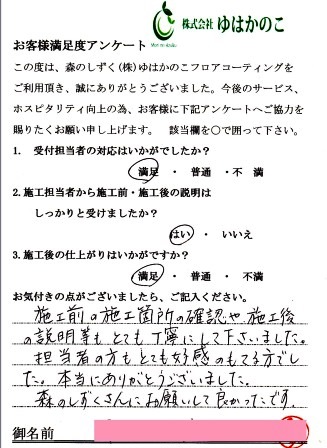 株式会社 ゆはかのこ
お客様満足度アンケート
この度は、森のしずく(株)ゆはかのこフロアコーティングを
ご利用頂き、誠にありがとうございました。今後のサービス、
ホスピタリティ向上の為、お客様に下記アンケートへご協力を
賜りたくお願い申し上げます。 該当欄を〇で囲って下さい。
1. 受付担当者の対応はいかがでしたか？
満足 ・ 普通 ・不 満
2.施工担当者から施工前・施工後の説明は
しっかりと受けましたか？
はい ・ いいえ
3.施工後の仕上がりはいかがですか？
満足 ・ 普通 ・ 不満
お気付きの点がございましたら、ご記入ください。
施工前の施工箇所の確認や施工後
の説明等もとても丁寧にして下さいました。
担当者の方もとても好感のもてる方でし
た。本当にありがとうございました。
森のしずくさんにお願いして良かったです。
御名前